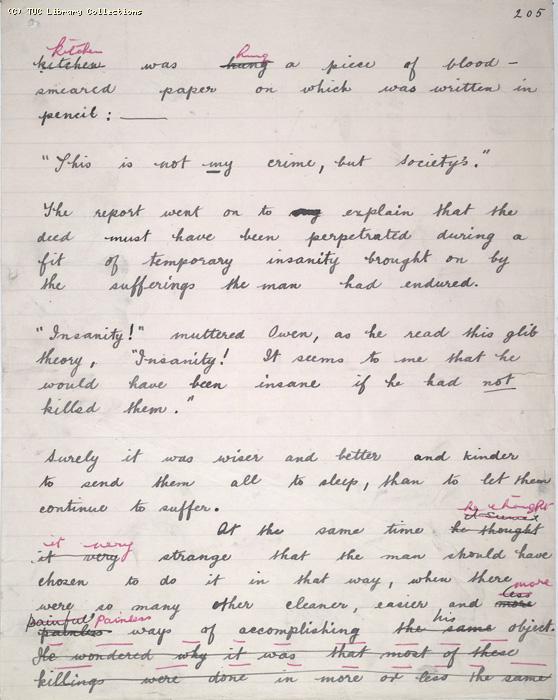 (c) TUC Library Collections
205
kitchen hung
kitchen was hung a piece of blood-
smeared paper on which was written in
pencil : —
"This is not my crime, but society's."
The report went on to explain that the
deed must have been perpetrated during a
fit of temporary insanity brought on by
the sufferings the man had endured.
"Insanity!" muttered Owen, as he read this glib
theory, "Insanity! It seems to me that he
would have been insane if he had not
killed them."
Surely it was wiser and better and kinder
to send them all to sleep, than to let them
continue to suffer.
he thought
At the same time he thought
it very
it very strange that the man should have
chosen to do it in that way, when there
more
less
were so many other cleaner, easier and more
painful Painless his
painless ways of accomplishing the same object.
He wondered why it was that most of these
killings were done in more or less the same